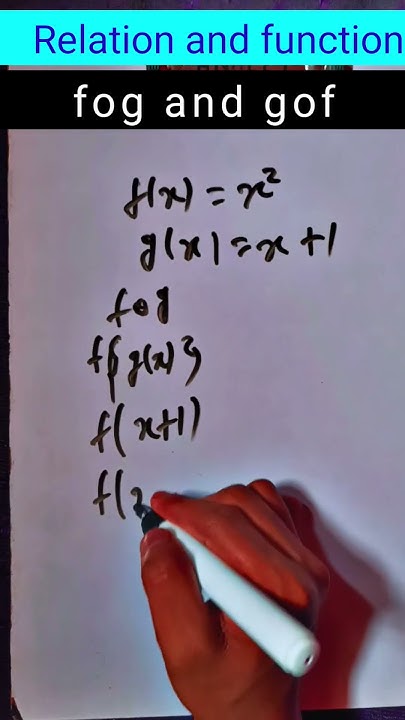 Relation and function
fog and gof
f(x) = x²
g(x) = x + 1
fog
f{g(x)}
f(x+1)
f(